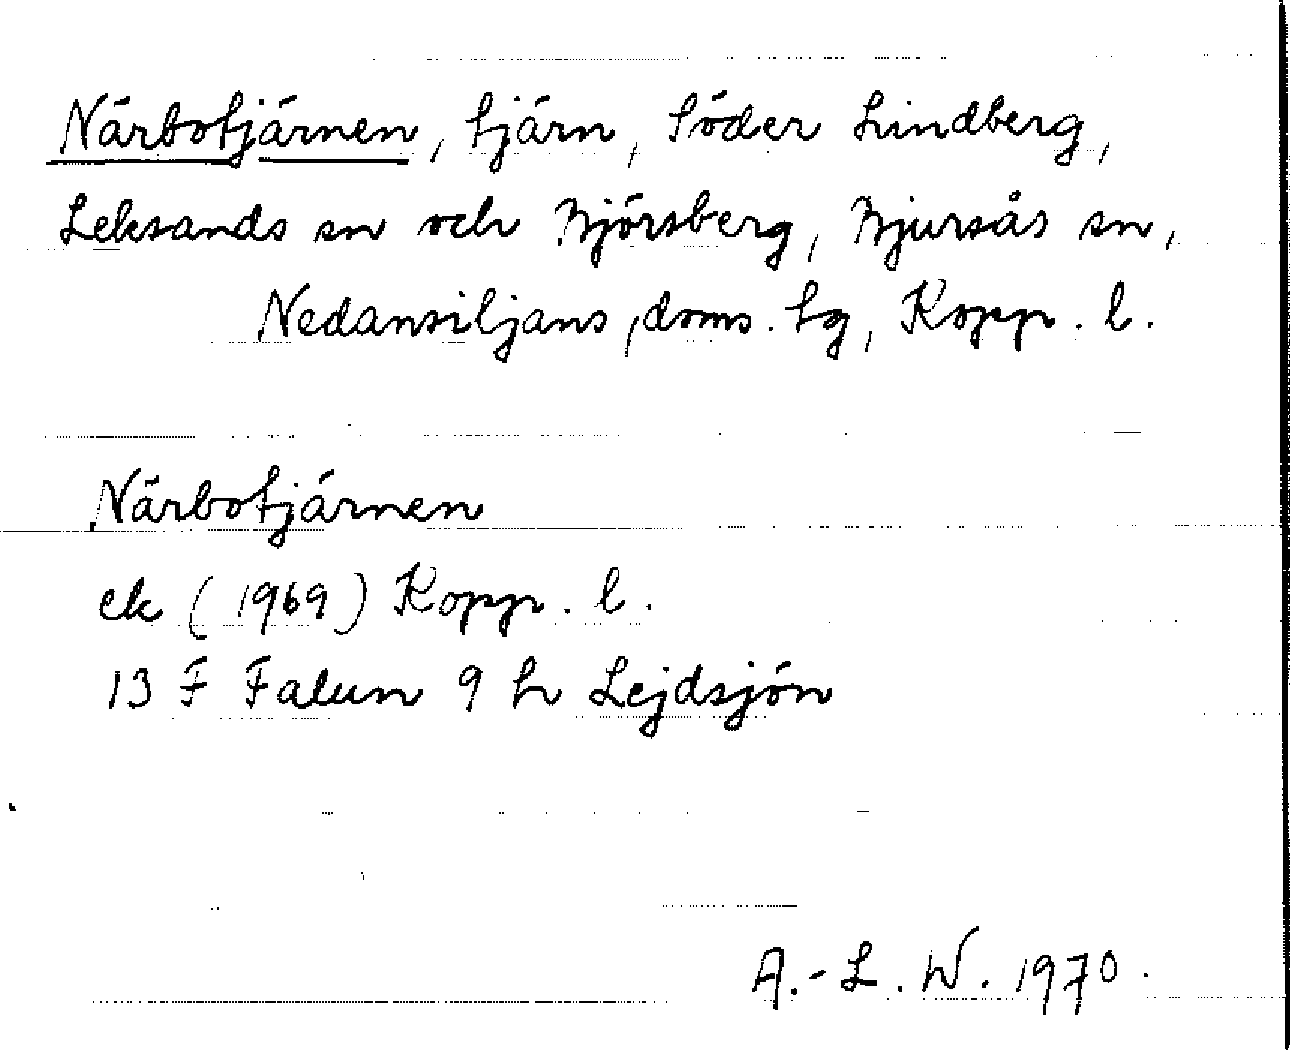 Närbotjärnen, tjärn, Söder Lindberg,
Leksands sn och Björsberg, Bjursås sn,
Nedansiljans, doms. tg, Kopp. l.
Närbotjärnen
ek (1969) Kopp. l.
13 F Falun 9 h Lejdsjön
A.-L. W. 1970.